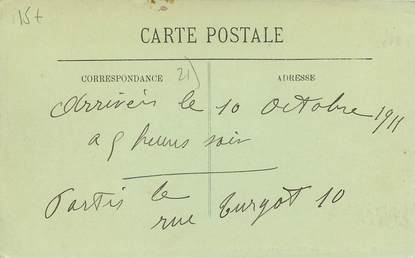 15+
CARTE POSTALE
CORRESPONDANCE
21)
ADRESSE
Arrivés le 10 octobre 1911
a 9 heures soir
Partis le
rue Turgot 10